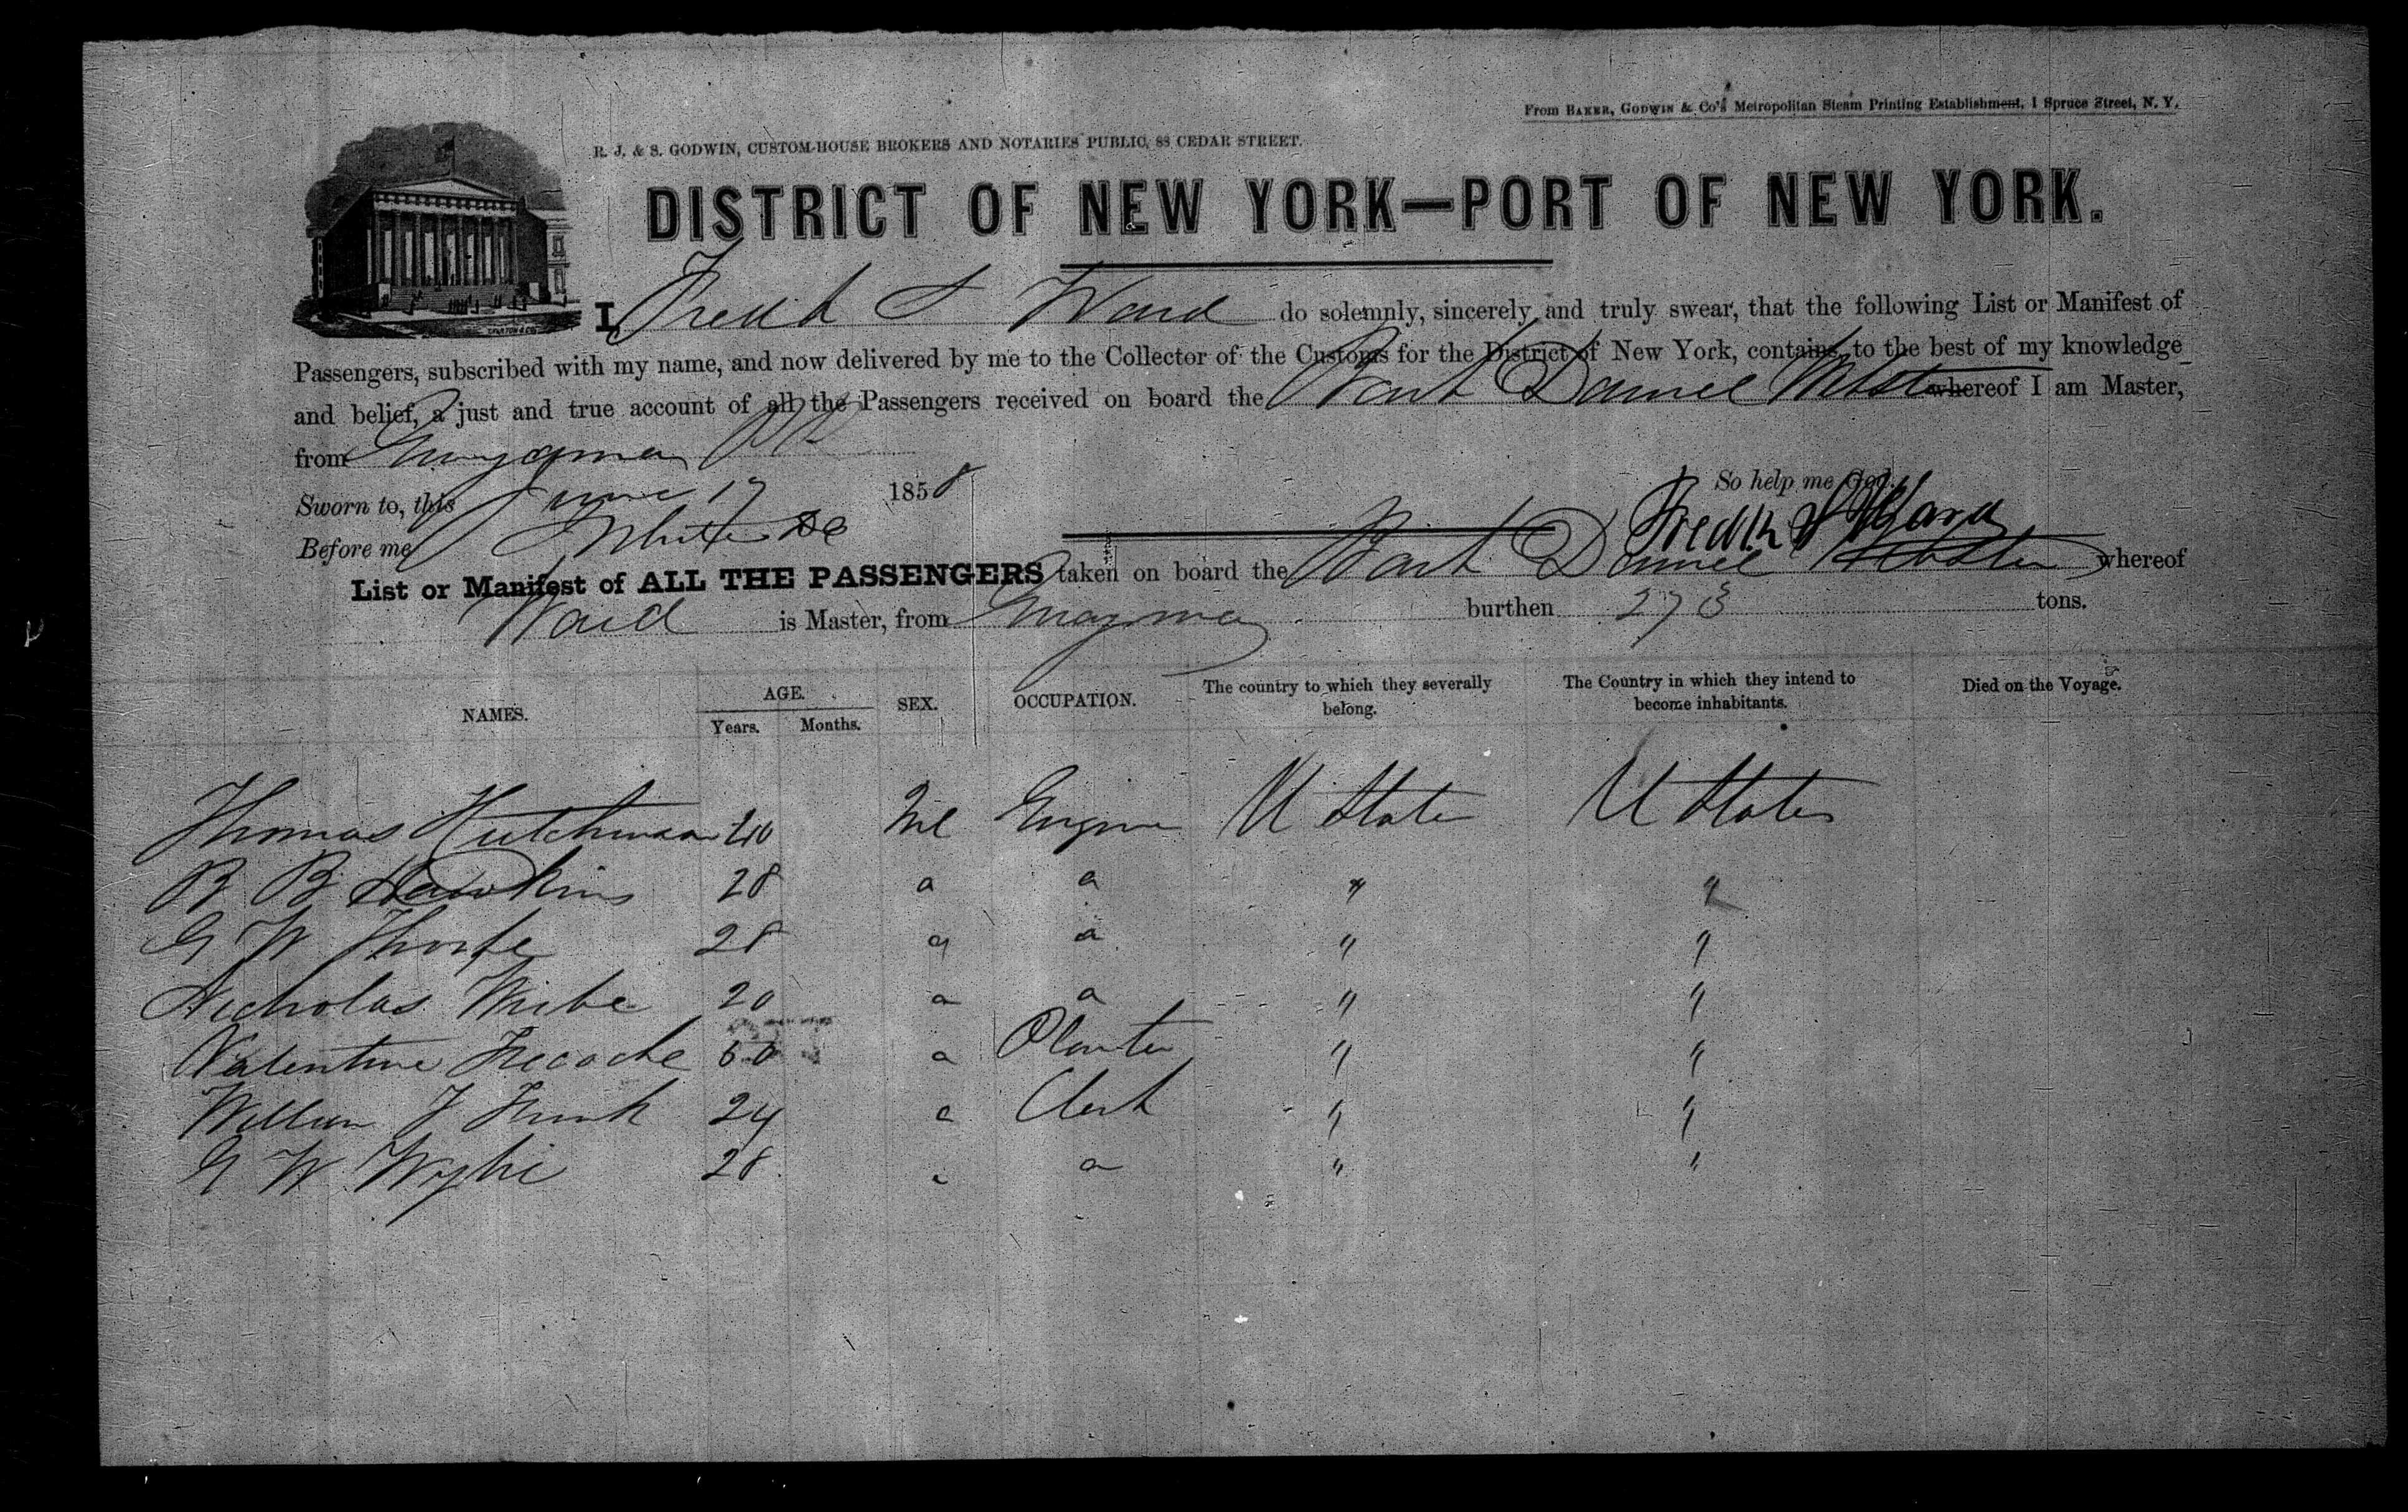 From BAKER, GODWIN & Co's Metropolitan Steam Printing Establishment, 1 Spruce Street, N. Y.
R. J. & S. GODWIN, CUSTOM-HOUSE BROKERS AND NOTARIES PUBLIC, 88 CEDAR STREET.
DISTRICT OF NEW YORK—PORT OF NEW YORK.
I, Fredk S Ward do solemnly, sincerely and truly swear, that the following List or Manifest of
Passengers, subscribed with my name, and now delivered by me to the Collector of the Customs for the District of New York, contains, to the best of my knowledge
and belief, a just and true account of all the Passengers received on board the Bark Daniel Webster whereof I am Master,
from Guayama PR
So help me God.
Sworn to, this June 17 1858
Fredk S Ward
Before me
List or Manifest of ALL THE PASSENGERS taken on board the Bark Daniel Webster whereof
Ward is Master, from Guayama burthen 273 tons.
NAMES. AGE. Years. Months. SEX. OCCUPATION. The country to which they severally belong. The Country in which they intend to become inhabitants. Died on the Voyage.
Thomas Hutchinson 40 Ml U States U States
B B Hawkins 28 " " " "
G W Thorpe 28 " " " "
Nicholas 20 " " " "
Valentine 60 " Planter " "
William J 24 " Clerk " "
G W Wylie 28 " " " "